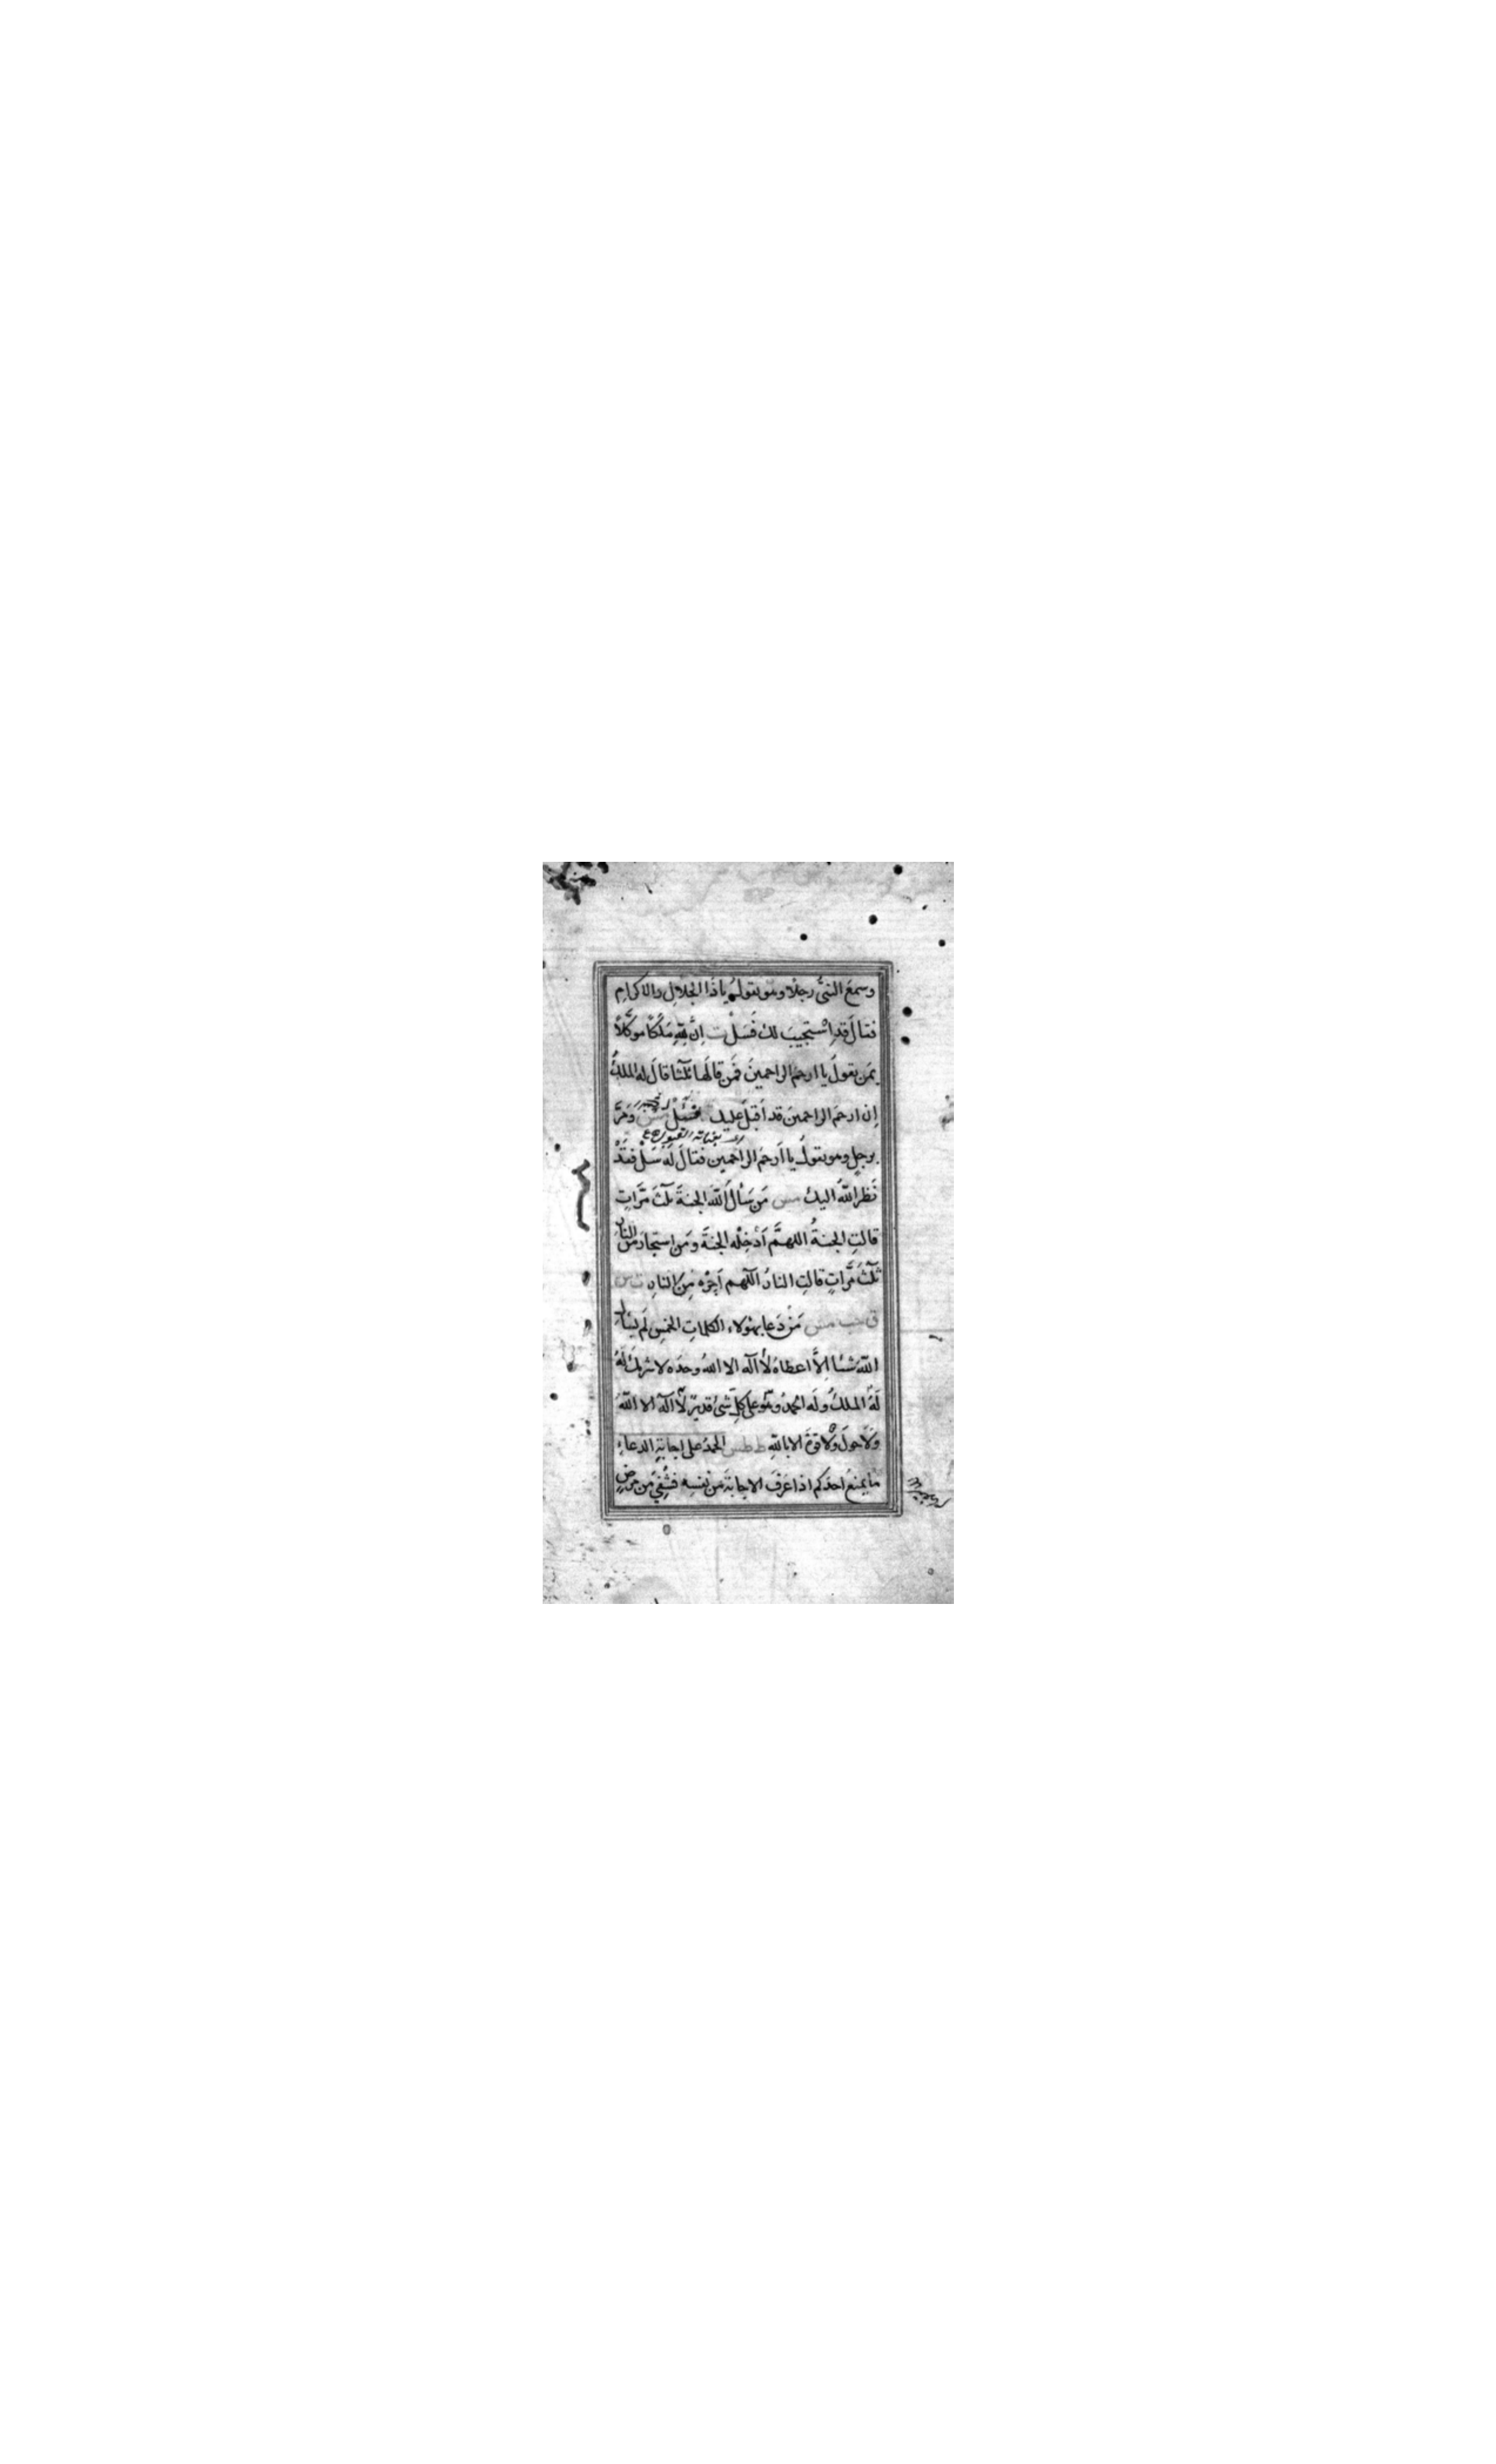 وسمعَ النبىُّ رجلًا وهو يقولُ ياذا الجلالِ والاكرامِ
فقالَ قدِ اسْتجيبَ لك فَسَلْ ت اِنَّ للّٰهِ مَلَكًا موَكَّلًا
بمَن يقولُ يا ارحمَ الراحمينَ فمَن قالَها ثلٰثا قالَ له الملكُ
اِن ارحمَ الراحمينَ قد اَقبلَ عليك فسَلْ مس وَمَرَّ
برجلٍ وهو يقولُ يا اَرحمَ الراحمين فقالَ لهُ سَلْ فقَدْ
نَظرَ اللّٰهُ اليك مس مَن سَألَ اللّٰهَ الجنةَ ثلٰثَ مَرَّاتٍ
قالتِ الجنةُ اللهمَّ اَدْخِلْه الجنةَ ومَن استجارَ مِنَ النارِ
ثلٰثَ مَرَّاتٍ قالتِ النارُ اللّٰهم اَجِرْه مِنَ النارِ ت س
ق حب مس مَنْ دَعا بهٰؤلاء الكلماتِ الخمسِ لَم يَسْألِ
اللّٰهَ شيئا اِلَّا اعطاهُ لٰا اله الا اللّٰهُ وحدَه لا شريكَ لَهُ
لَهُ الملكُ ولَه الحمدُ وهُو على كلِّ شىءٍ قديرٌ لٰا اله الا اللّٰهُ
وَلَا حولَ ولَا قوةَ الا باللّٰهِ ط طس الحمدُ على اِجابةِ الدعاءِ
مايمنعُ احدَكم اذا عَرفَ الاجابةَ من نفسِه فشُفِيَ من مرَضٍ